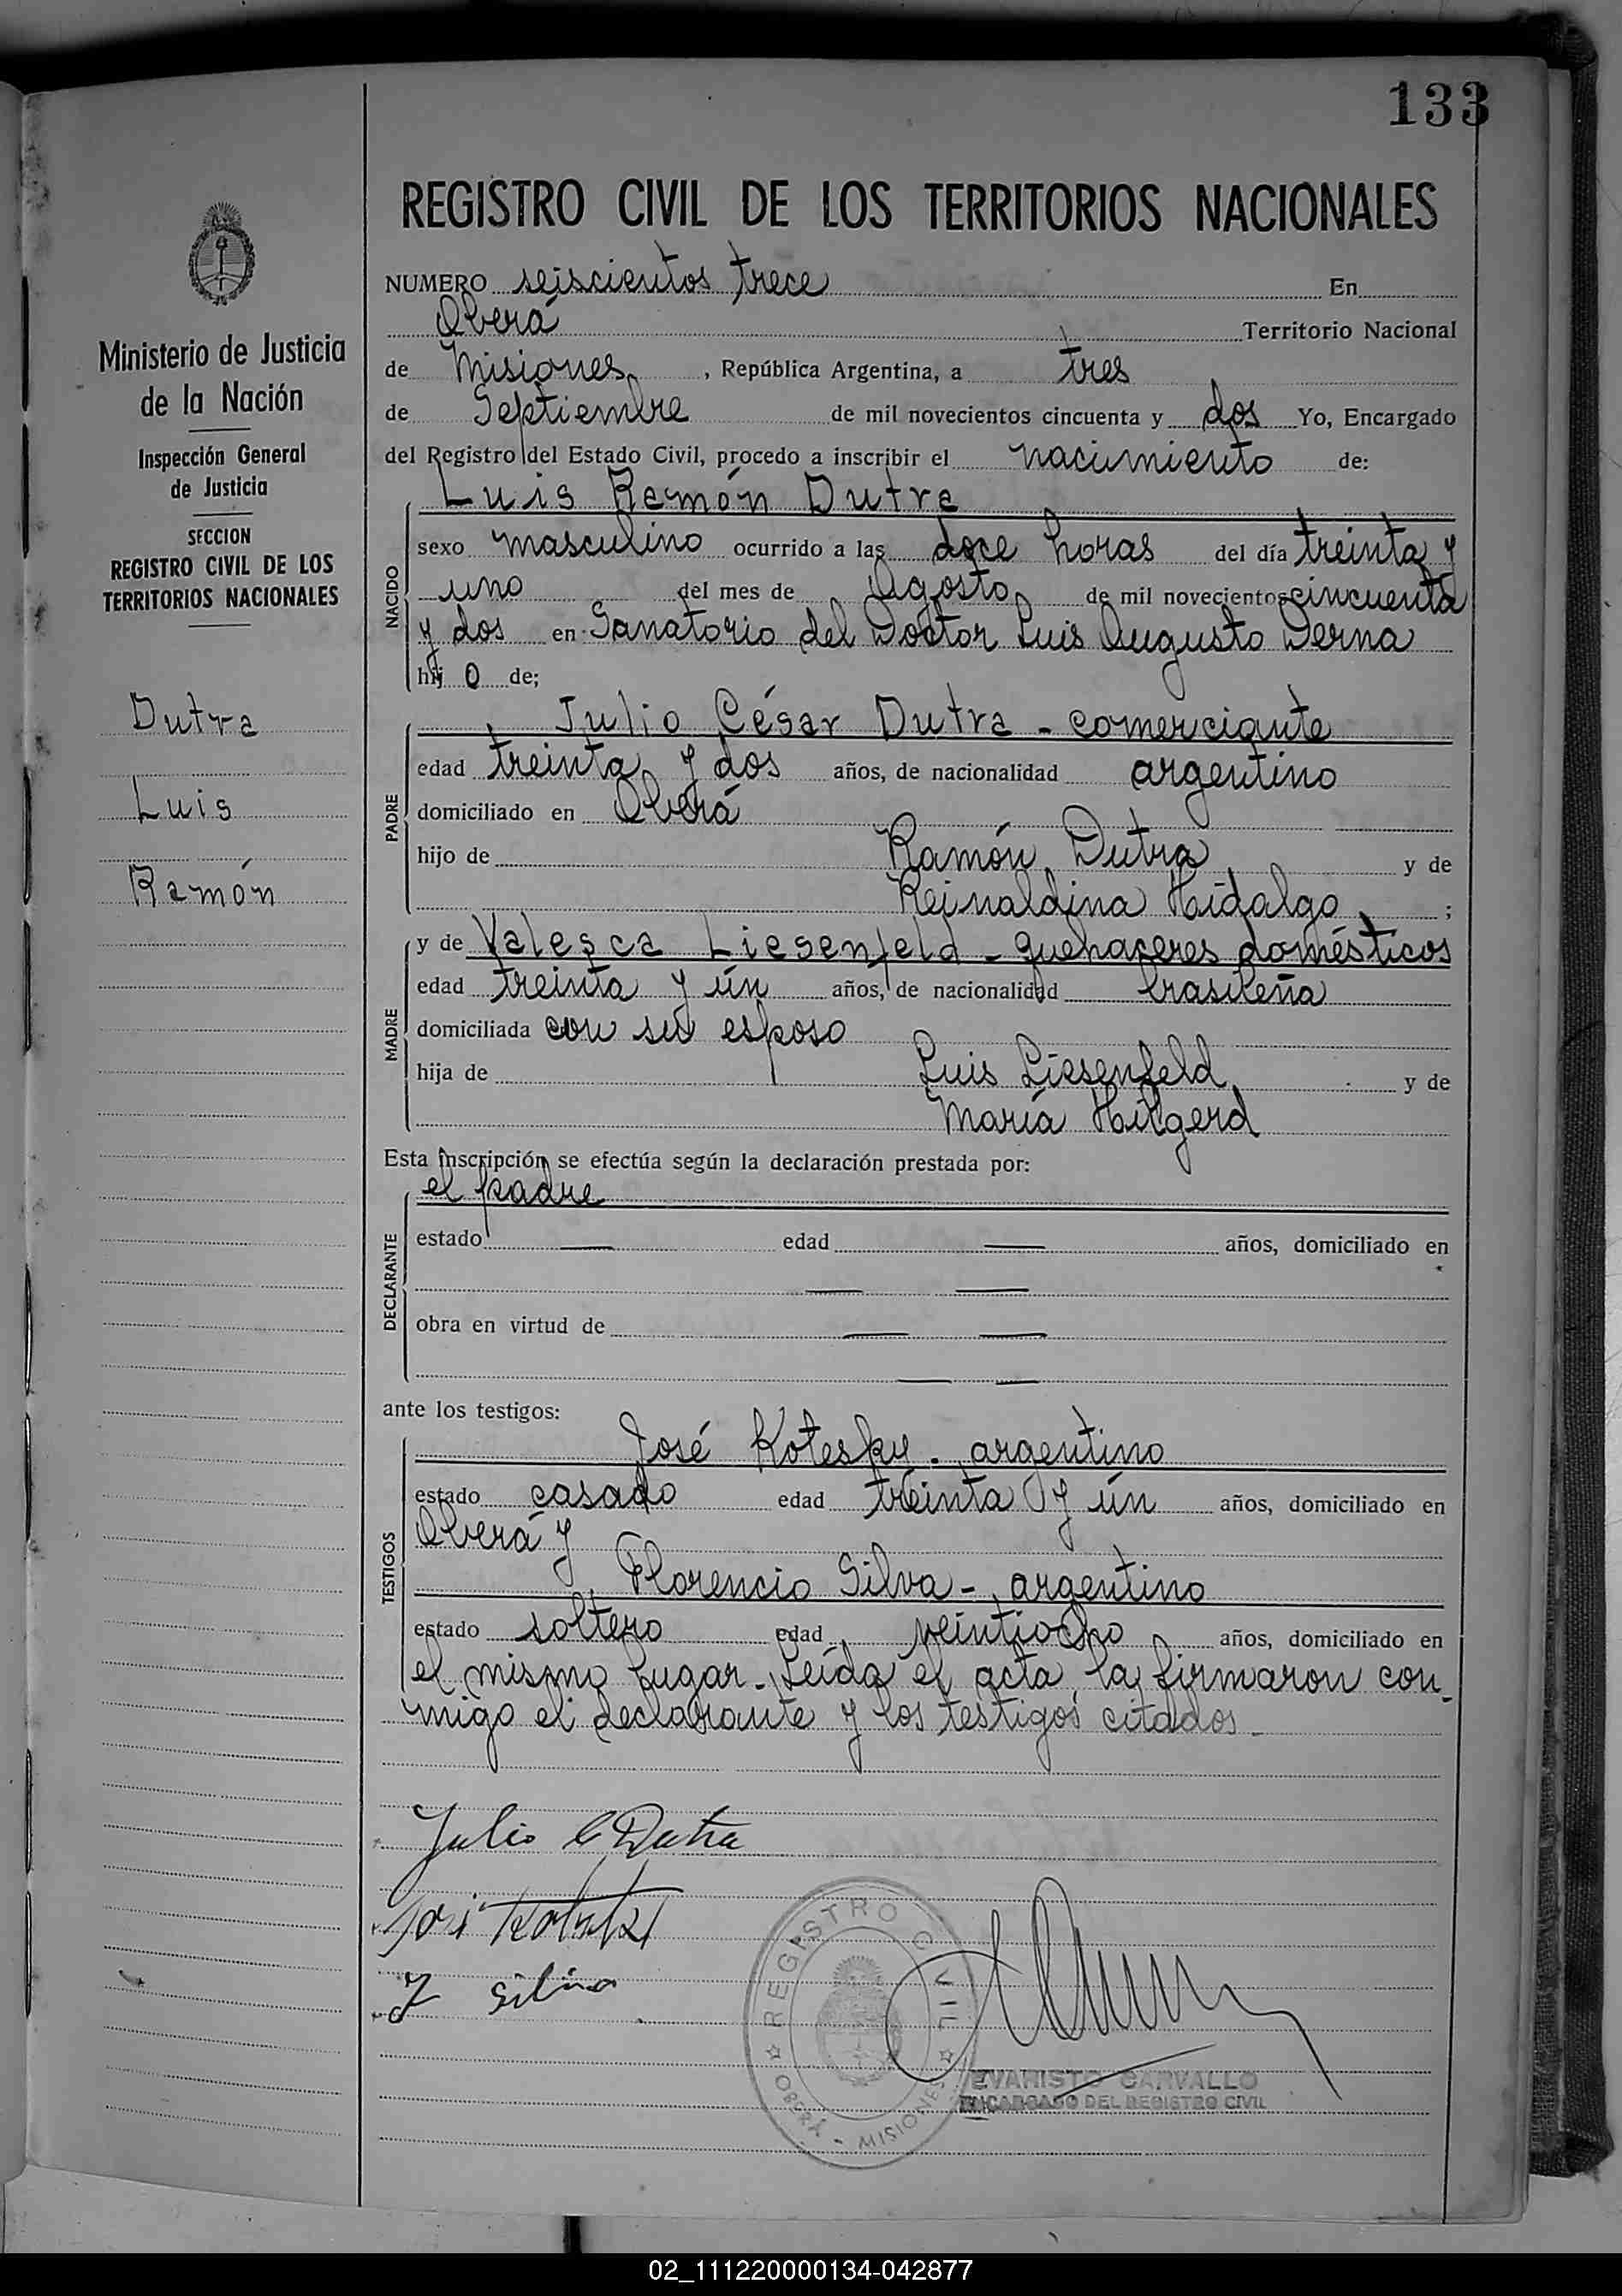 133
REGISTRO CIVIL DE LOS TERRITORIOS NACIONALES
Ministerio de Justicia
de la Nación
Inspección General
de Justicia
SECCION
REGISTRO CIVIL DE LOS
TERRITORIOS NACIONALES
Dutra
Luis
Ramón
NUMERO seiscientos trece En
Oberá Territorio Nacional
de Misiones, República Argentina, a tres
de Septiembre de mil novecientos cincuenta y dos Yo, Encargado
del Registro del Estado Civil, procedo a inscribir el nacimiento de:
Luis Ramón Dutra
NACIDO
sexo masculino ocurrido a las doce horas del día treinta y
uno del mes de Agosto de mil novecientos cincuenta
y dos en Sanatorio del Doctor Luis Augusto Derna
hij o de;
Julio César Dutra - comerciante
PADRE
edad treinta y dos años, de nacionalidad argentino
domiciliado en Oberá
hijo de Ramón Dutra y de
Reinaldina Hidalgo ;
y de Valesca Liesenfeld - quehaceres domésticos
MADRE
edad treinta y ún años, de nacionalidad brasileña
domiciliada con su esposo
hija de Luis Liesenfeld y de
María Hilgerd
Esta inscripción se efectúa según la declaración prestada por:
el padre
DECLARANTE
estado — edad — años, domiciliado en
— —
obra en virtud de — —
— —
ante los testigos:
José Kotesky - argentino
TESTIGOS
estado casado edad treinta y ún años, domiciliado en
Oberá y
Florencio Silva - argentino
estado soltero edad veintiocho años, domiciliado en
el mismo lugar. Leída el acta, la firmaron con-
migo el declarante y los testigos citados -
Julio C Dutra
F Silva
REGISTRO CIVIL
OBERÁ - MISIONES
EVARISTO CARVALLO
ENCARGADO DEL REGISTRO CIVIL
02_111220000134-042877